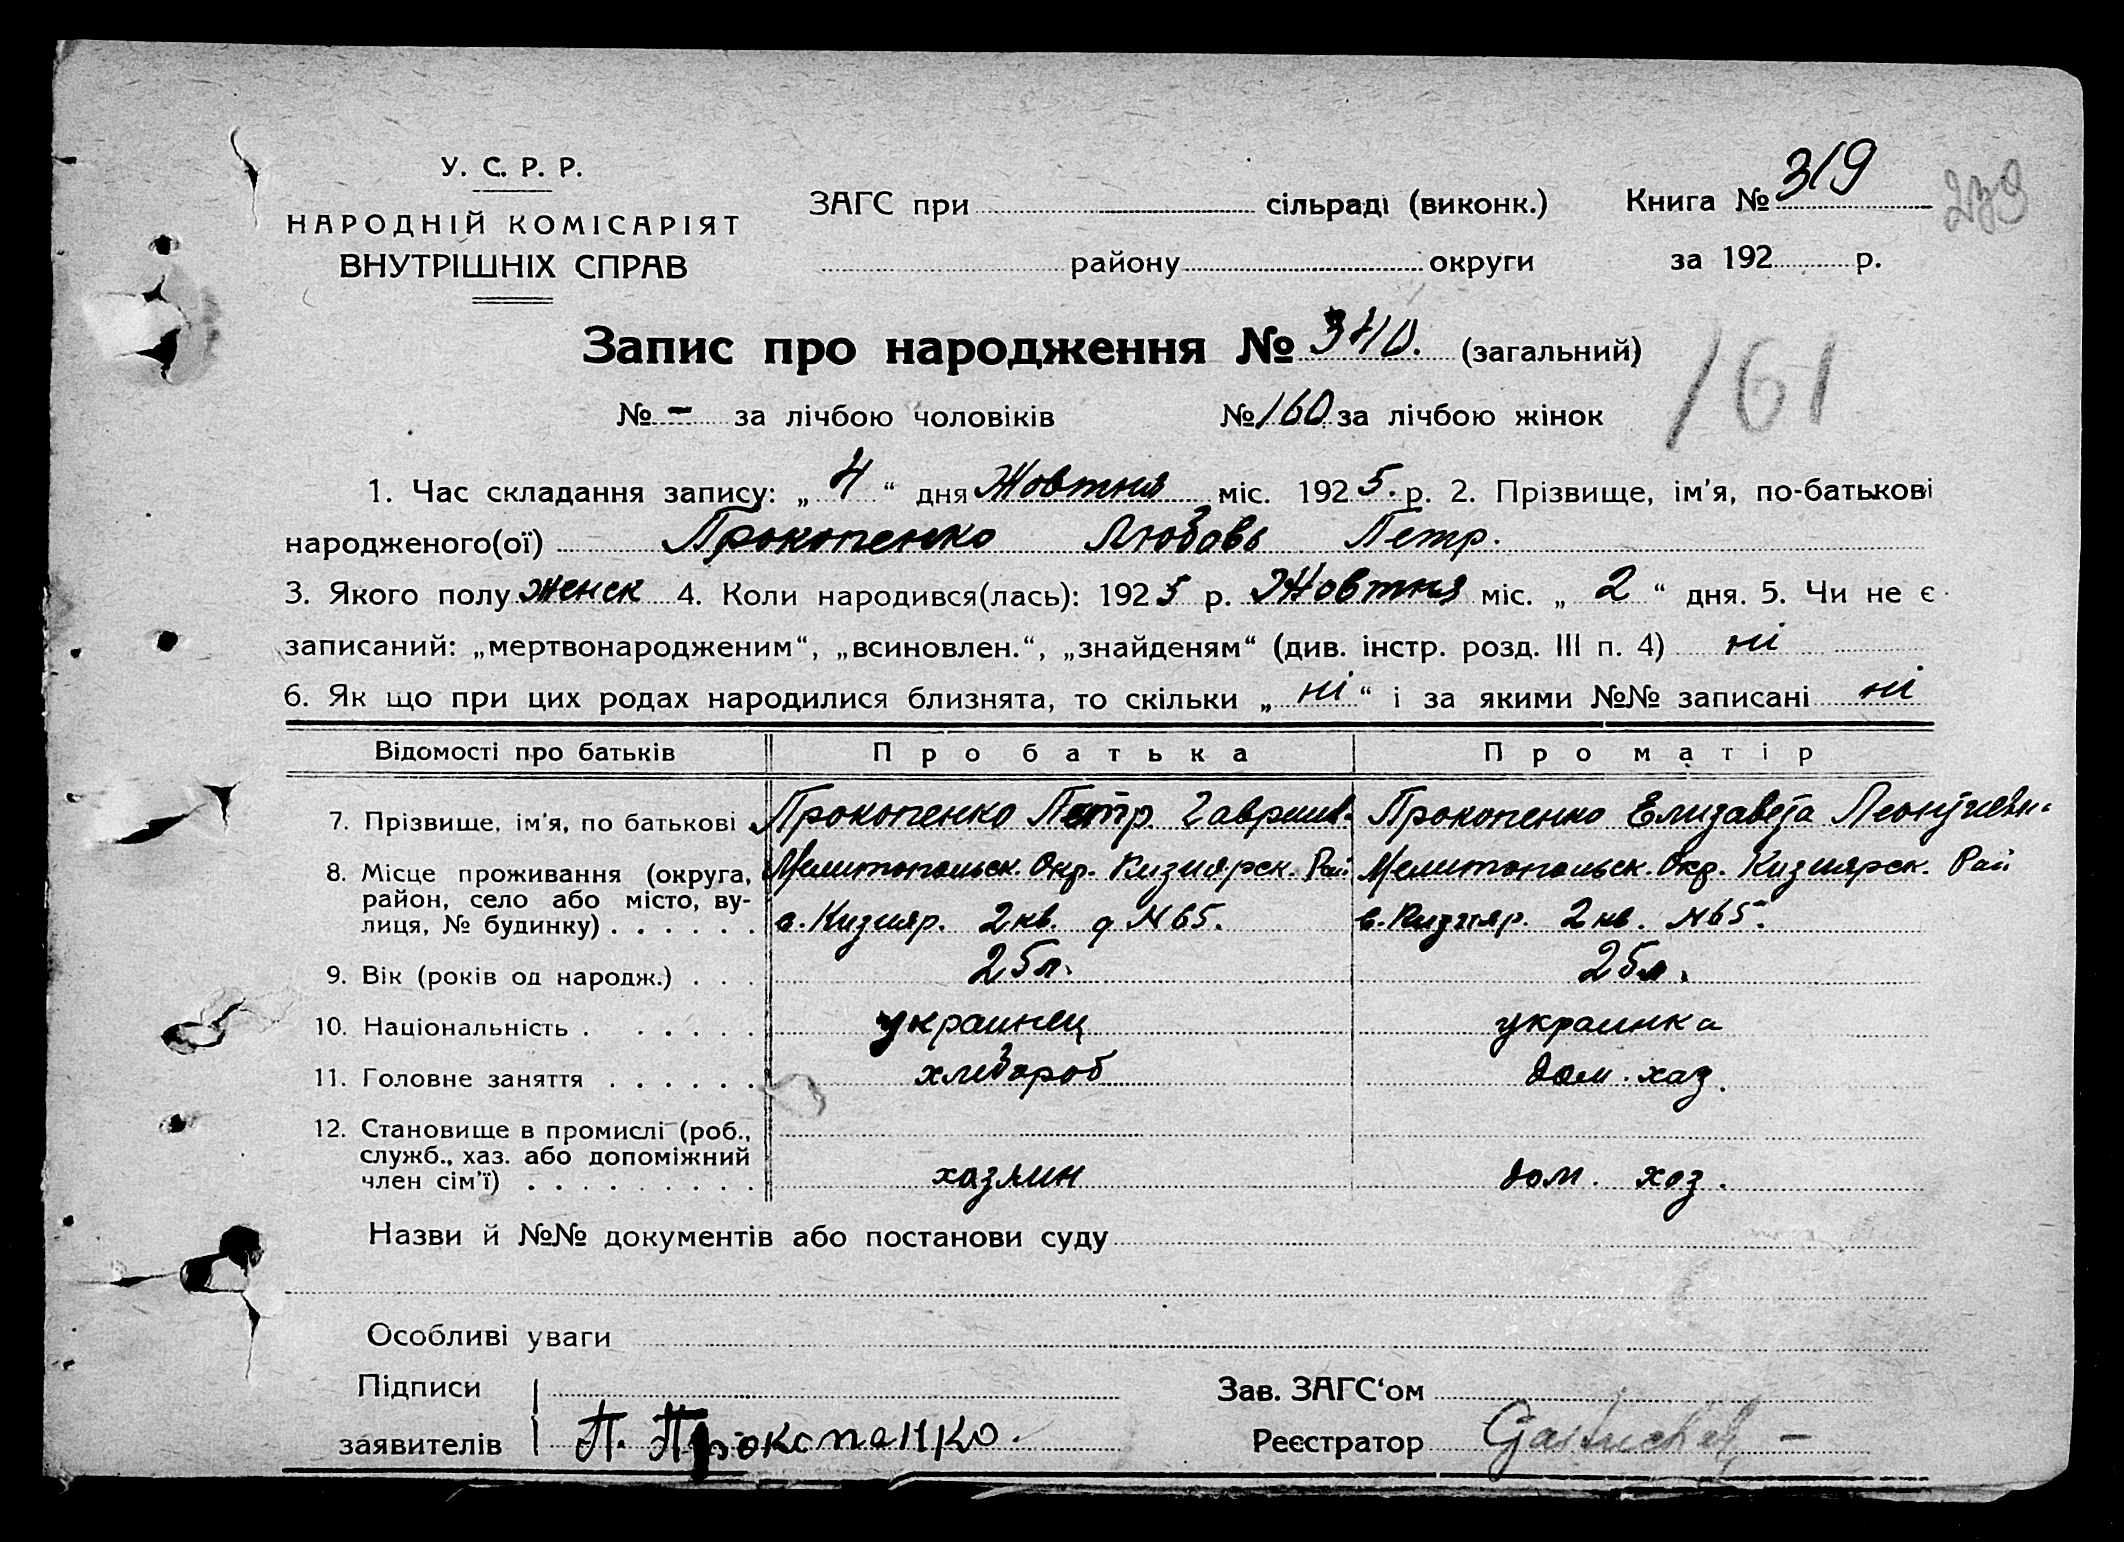 У. С. Р. Р.
НАРОДНІЙ КОМІСАРІЯТ
ВНУТРІШНІХ СПРАВ
ЗАГС при сільраді (виконк.)
району округи
Книга № 319
239
за 192 р.
Запис про народження № 340. (загальний)
№ - за лічбою чоловіків № 160 за лічбою жінок
161
1. Час складання запису: „ 4 “ дня Жовтня міс. 192 5. р. 2. Прізвище, ім'я, по-батькові
народженого(ої) Прокопенко Любовь Петр.
3. Якого полу женск 4. Коли народився(лась): 192 5 р. Жовтня міс. „ 2 “ дня. 5. Чи не є
записаний: „мертвонародженим“, „всиновлен.“, „знайденям“ (див. інстр. розд. III п. 4) ні
6. Як що при цих родах народилися близнята, то скільки „ ні “ і за якими №№ записані ні
Відомості про батьків Про батька Про матір
7. Прізвище, ім'я, по батькові Прокопенко Петр. Гаврилив. Прокопенко Елизавета
8. Місце проживання (округа, Мелитопольск. Окр. Кизиярск. Рай Мелитопольск. Окр. Кизиярск. Рай
район, село або місто, ву-
лиця, № будинку) . . . . . . с. Кизияр. 2 кв. д № 65. с. Кизияр. 2 кв. № 65.
9. Вік (років од народж.) . . . 25 л. 25 л.
10. Національність . . . . . . украинец украинка
11. Головне заняття . . . . . . хлибороб дом. хаз.
12. Становище в промислі (роб.,
служб., хаз. або допоміжний
член сім'ї) . . . . . . . . . хазяин дом. хоз.
Назви й №№ документів або постанови суду
Особливі уваги
Підписи
заявителів П. Прокопанко.
Зав. ЗАГС'ом
Реєстратор